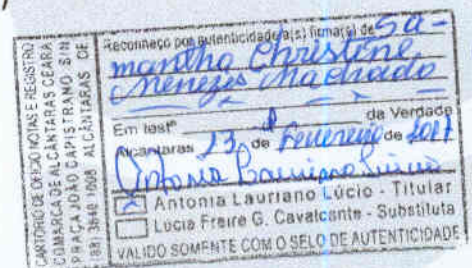 CARTÓRIO DE OFÍCIO NOTAS E REGISTRO
COMARCA DE ALCÂNTARAS CEARÁ
PRAÇA JOÃO CAPISTRANO S/N
(88) 3640 1008 ALCÂNTARAS CE
Reconheço por autenticidade a(s) firma(s) de Sa-
mantha Christene
Menezes Machado
Em testº da Verdade
Alcântaras 23 de Fevereiro de
Antonia Lauriano Lúcio
Antonia Lauriano Lúcio - Titular
Lúcia Freire G. Cavalcante - Substituta
VALIDO SOMENTE COM O SELO DE AUTENTICIDADE